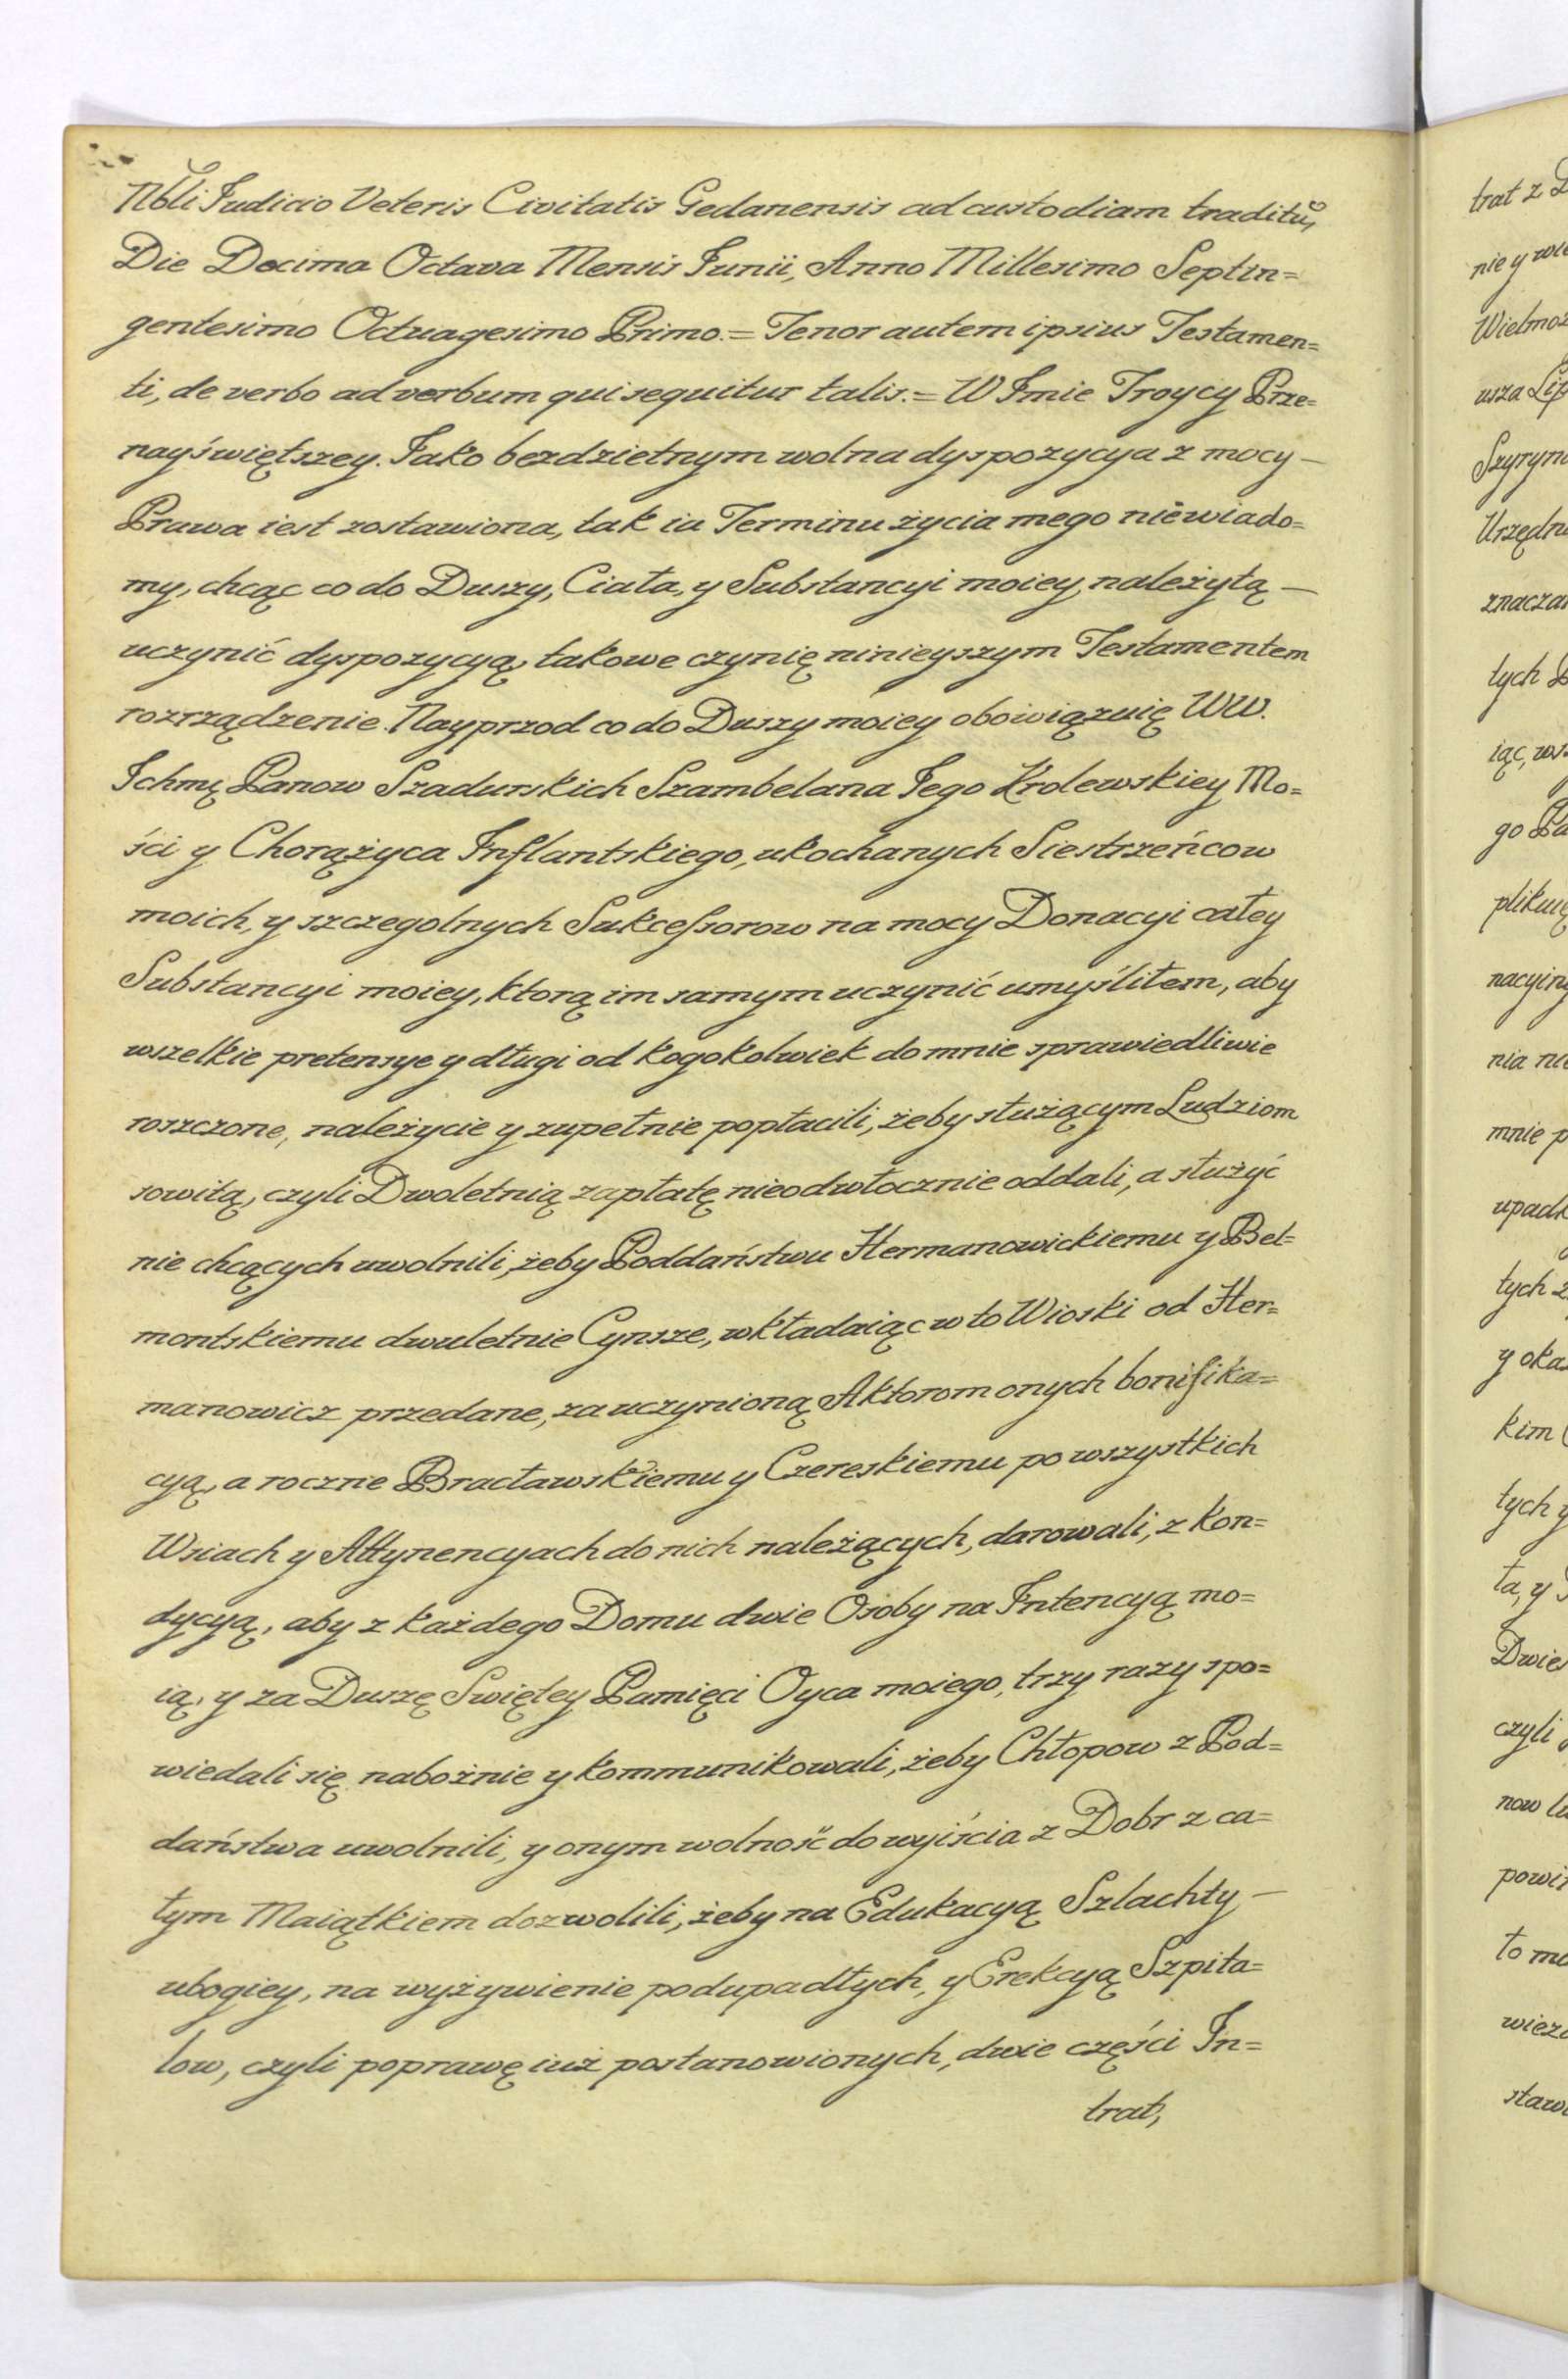 Nbli Judicio Veteris Civitatis Gedanensis ad custodiam traditū,
Die Decima Octava Mensis Junii, Anno Millesimo Septin=
gentesimo Octuagesimo Primo.= Tenor autem ipsius Testamen=
ti, de verbo ad verbum qui sequitur talis.= W Imie Troycy Prze=
nayświętszey. Jako bezdzietnym wolna dyspozycya z mocy —
Prawa iest zostawiona, tak ia Terminu życia mego niewiado=
my, chcąc co do Duszy, Ciała, y Substancyi moiey, należytą —
uczynić dyspozycyą, takowe czynię ninieyszym Testamentem
rozrządzenie. Nayprzod co do Duszy moiey obowiązuię WW.
Ichmę Panow Szadurskich Szambelana Jego Krolewskiey Mo=
ści y Chorążyca Inflantskiego, ukochanych Siestrzeńcow
moich, y szczegolnych Sukcessorow na mocy Donacyi całey
Substancyi moiey, ktorą im samym uczynić umyśliłem, aby
wszelkie pretensye y długi od kogokolwiek do mnie sprawiedliwie
roszczone, należycie y zupełnie popłacili, żeby służącym Ludziom
sowitą, czyli Dwoletnią zapłatę nieodwłocznie oddali, a służyć
nie chcących uwolnili, żeby Poddaństwu Hermanowickiemu y Bel=
montskiemu dwuletnie Cynsze, wkładaiąc w to Wioski od Her=
manowicz przedane, za uczynioną Aktorom onych bonifika=
cyą, a roczne Bracławskiemu y Czereskiemu po wszystkich
Wsiach y Attynencyach do nich należących, darowali, z kon=
dycyą, aby z każdego Domu dwie Osoby na Intencyą mo=
ią, y za Duszę Swiętey Pamięci Oyca moiego, trzy razy spo=
wiedali się nabożnie y kommunikowali, żeby Chłopow z Pod=
daństwa uwolnili, y onym wolność do wyiścia z Dobr z ca=
łym Maiątkiem dozwolili, żeby na Edukacyą Szlachty —
ubogiey, na wyżywienie podupadłych, y Erekcyą Szpita=
low, czyli poprawę iuż postanowionych, dwie części In=
trat,
trat z
nie y
Szyryn
znacza
tych
iąc,
nia
mnie
tych
kim
tych y
ta, y
czyli
now
to